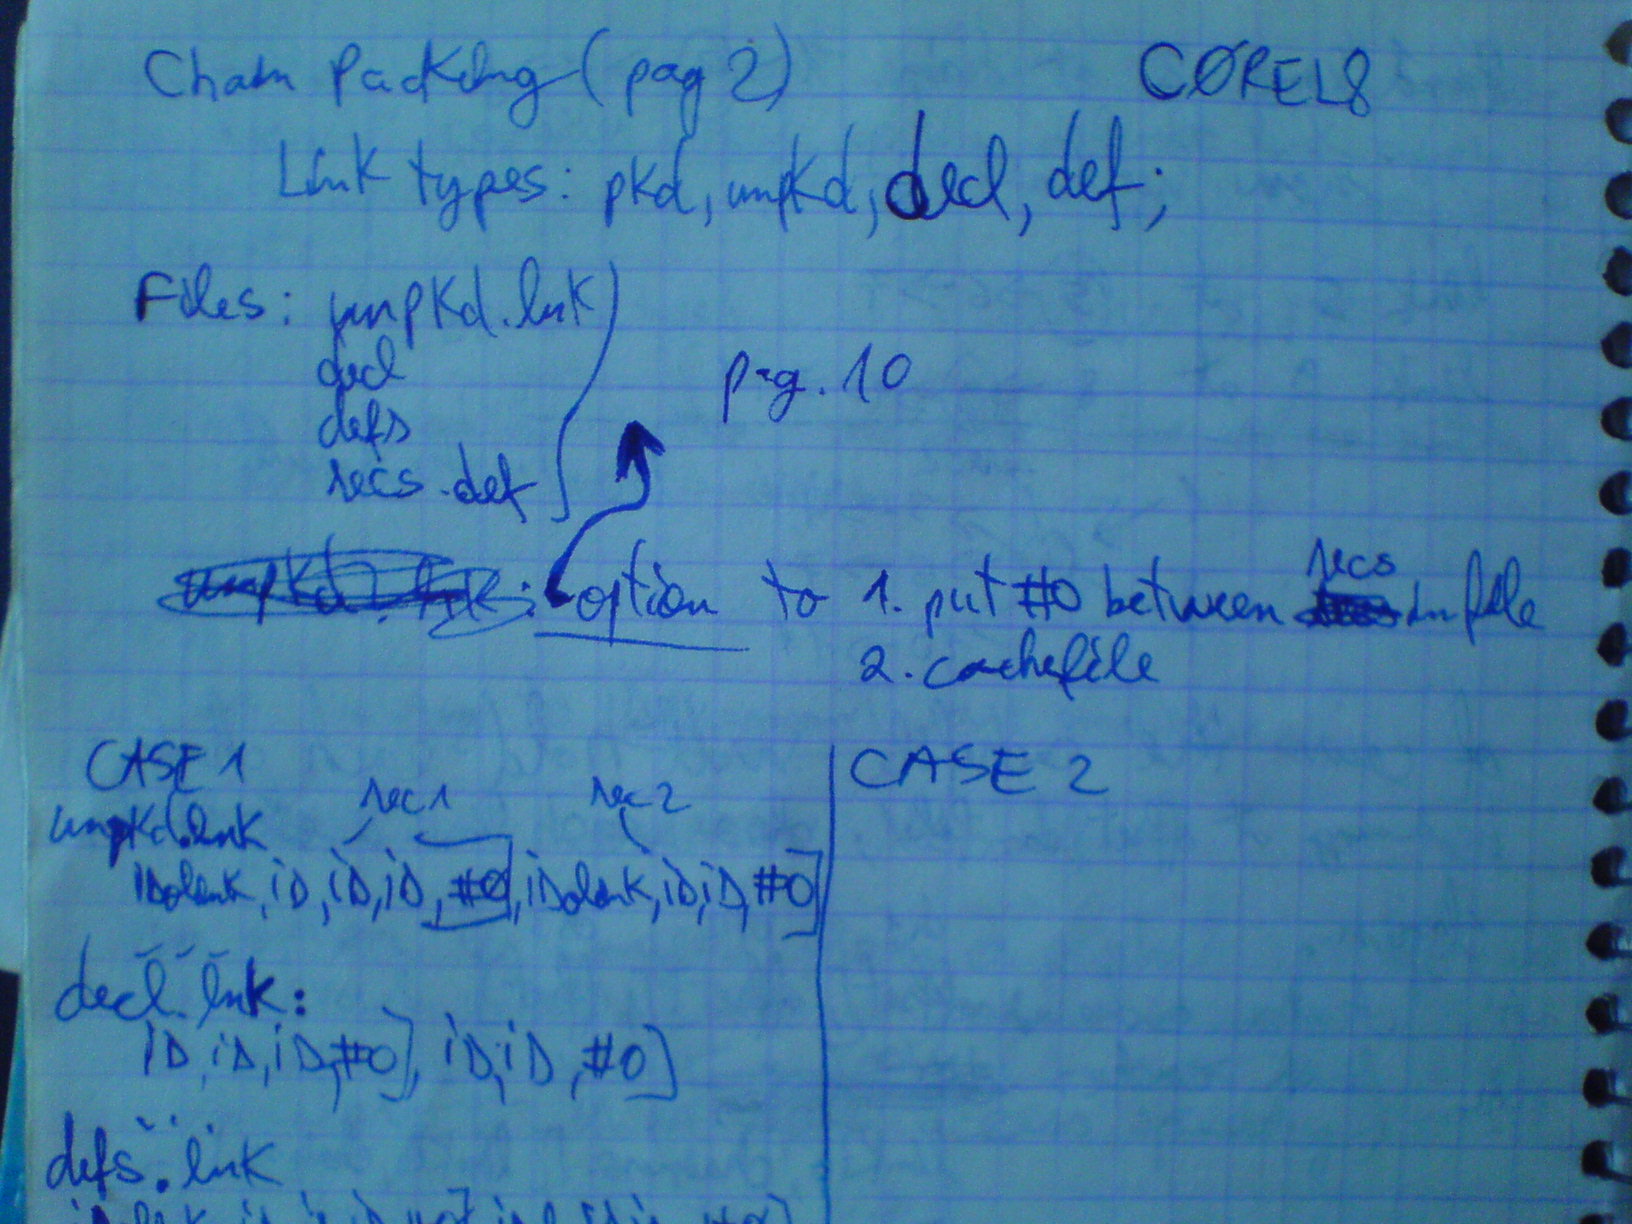 Chain Packing (pag 2) CØREL8
Link types: pkd, unpkd, decl, def;
Files: unpkd.lnk
decl
defs
recs.def
pag. 10
: option to 1. put #0 between recs in file
2. cachefile
CASE 1
CASE 2
rec1 rec2
unpkd.lnk
iDolink, iD, iD, iD, #0], iDolink, iD, iD, #0]
decl.lnk:
iD, iD, iD, #0], iD, iD, #0]
defs.lnk